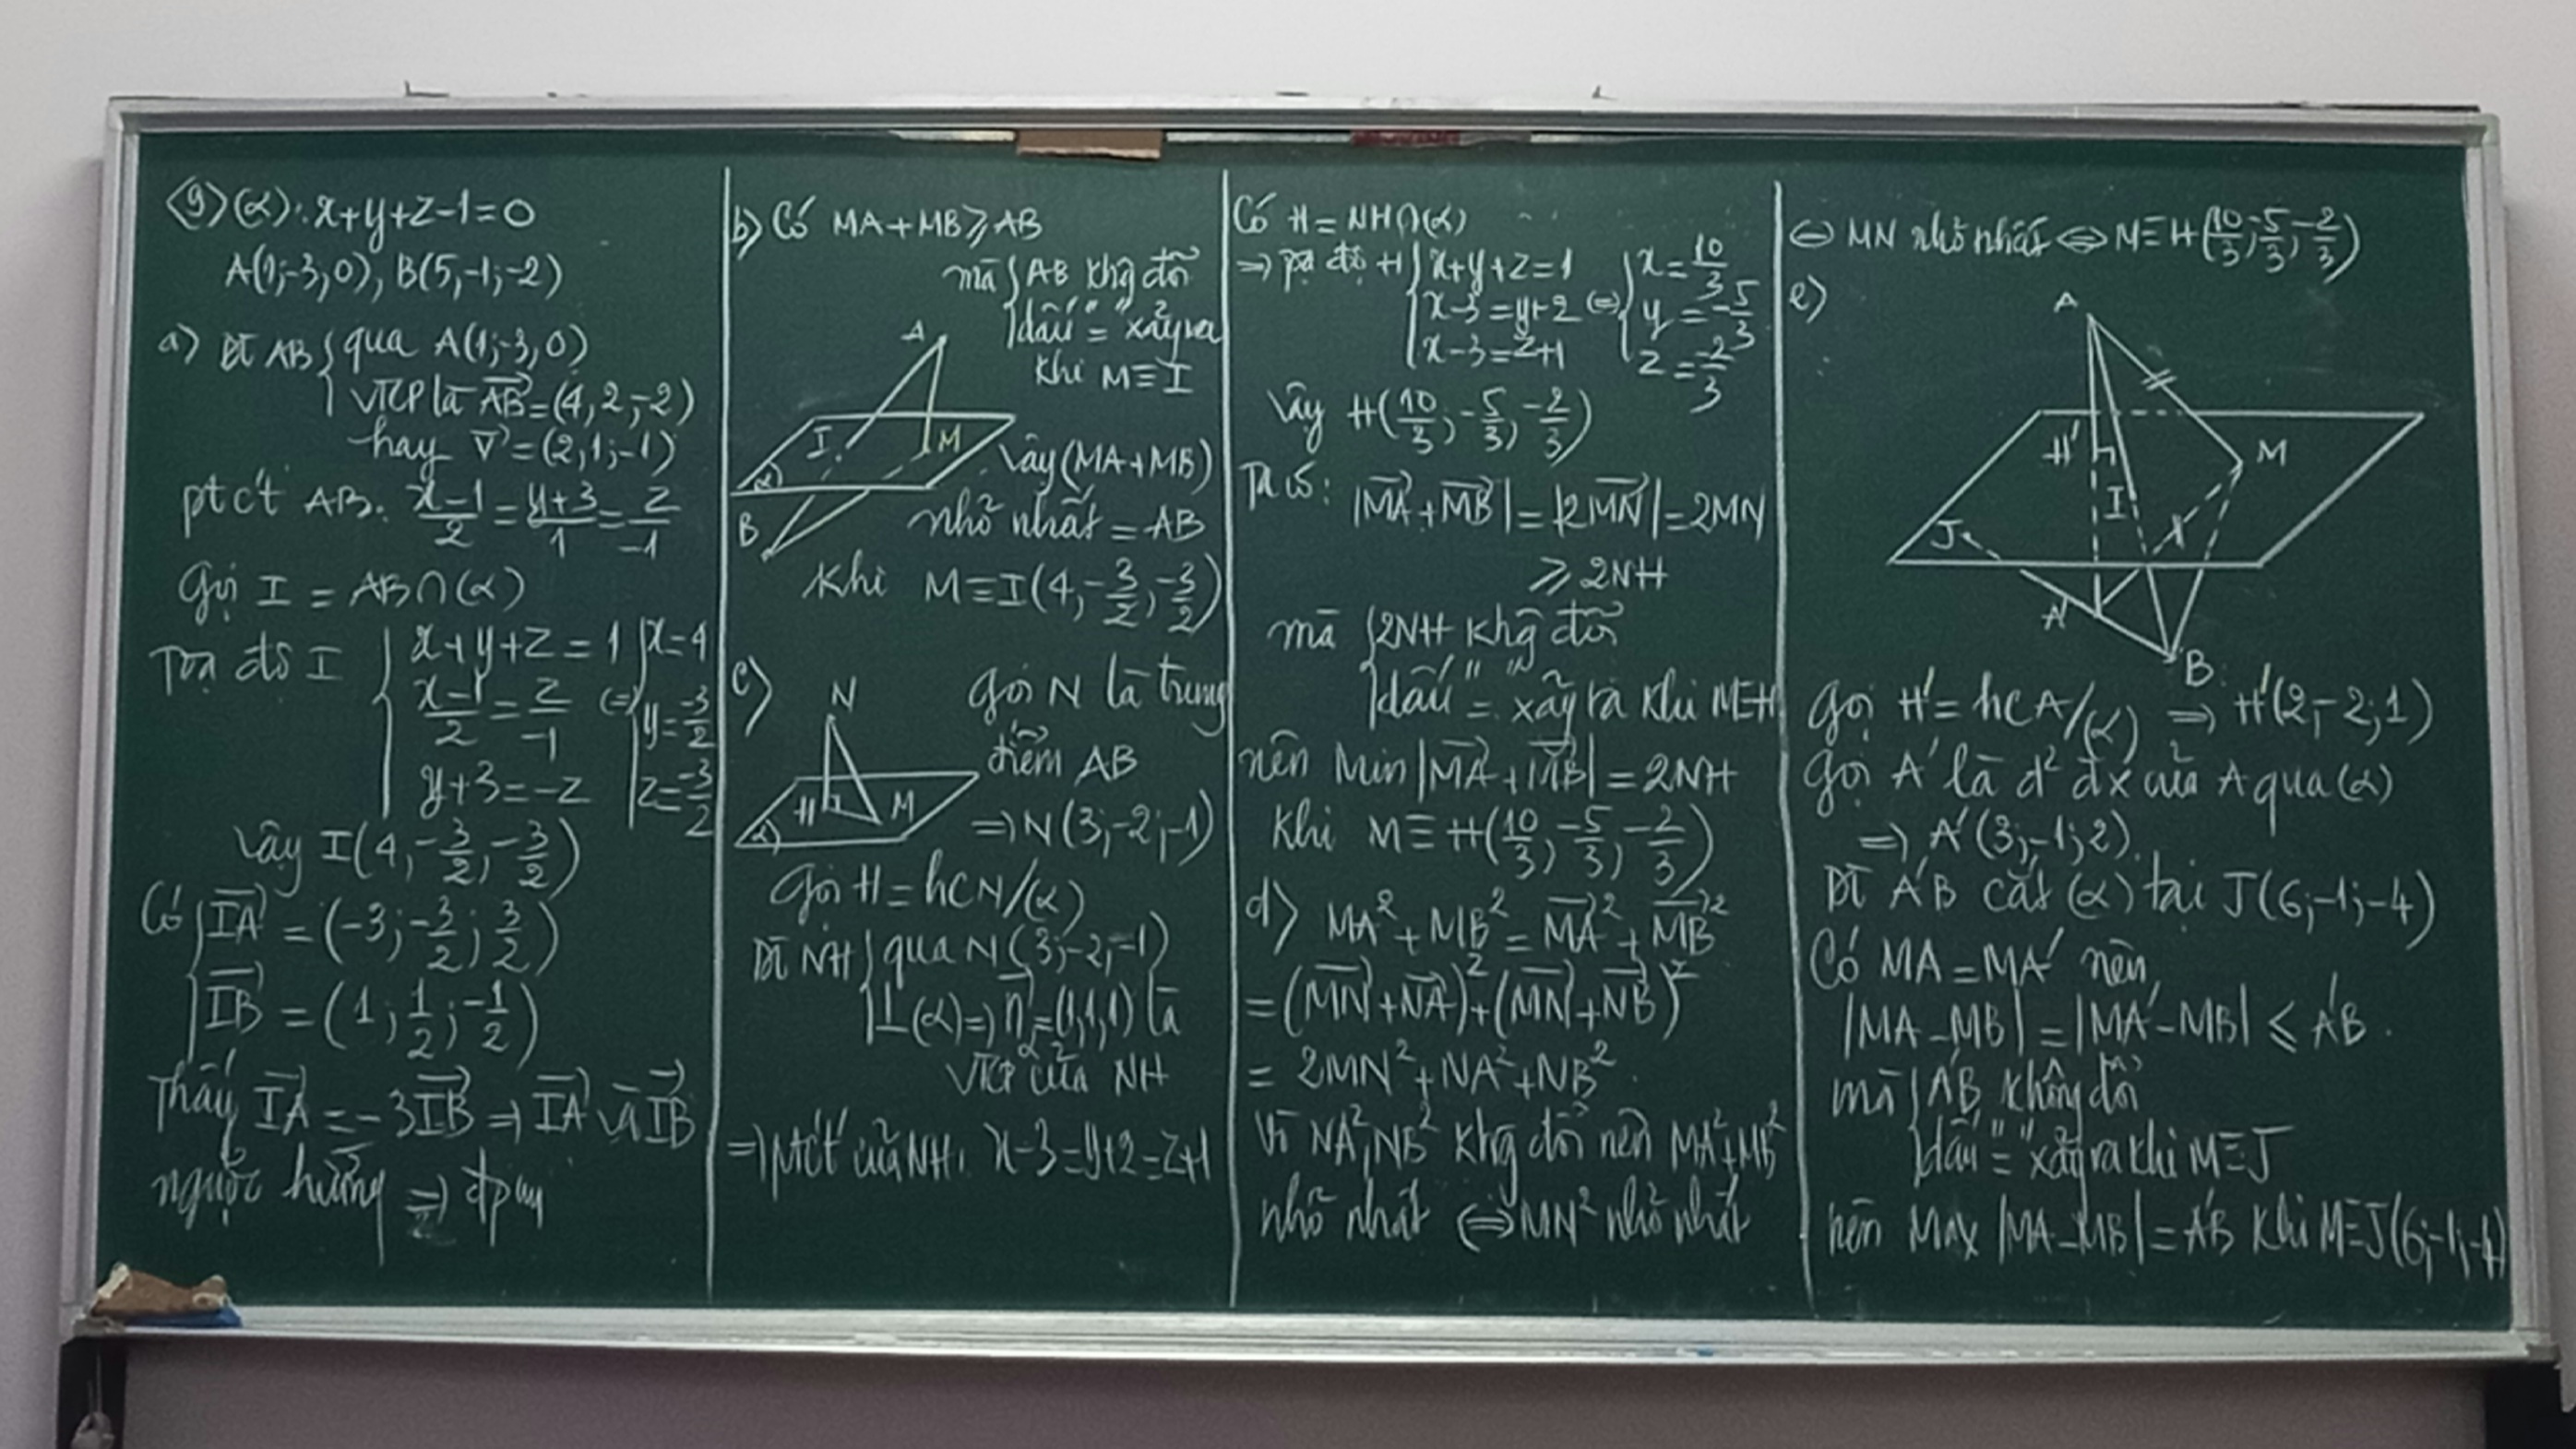 9) (α): x+y+z-1=0
A(1;-3;0), B(5;-1;-2)
a) Đt AB { qua A(1;-3;0)
VTCP là AB→=(4;2;-2)
hay v→=(2;1;-1)
ptct AB: (x-1)/2 = (y+3)/1 = z/-1
Gọi I = AB∩(α)
Tọa độ I { x+y+z=1
(x-1)/2 = z/-1
y+3=-z
⇔ { x=4
y=-3/2
z=-3/2
Vậy I(4;-3/2;-3/2)
Có { IA→ = (-3;-3/2;3/2)
IB→ = (1;1/2;-1/2)
Thấy IA→ = -3IB→ ⇒ IA→ và IB→
ngược hướng ⇒ đpcm
b) Có MA+MB ≥ AB
mà { AB khg đổi
dấu "=" xảy ra
khi M≡I
A
I
M
α
B
Vậy (MA+MB)
nhỏ nhất = AB
Khi M≡I(4;-3/2;-3/2)
c)
N
H
M
α
Gọi N là trung
điểm AB
⇒ N(3;-2;-1)
Gọi H = hc N/(α)
Đt NH { qua N(3;-2;-1)
⊥(α) ⇒ n→α=(1;1;1) là
VTCP của NH
⇒ ptct của NH: x-3=y+2=z+1
Có H = NH∩(α)
⇒ tọa độ H { x+y+z=1
x-3=y+2
x-3=z+1
⇔ { x=10/3
y=-5/3
z=-2/3
Vậy H(10/3;-5/3;-2/3)
Ta có: |MA→+MB→|=|2MN→|=2MN
≥ 2NH
mà { 2NH khg đổi
dấu "=" xảy ra khi M≡H
nên Min|MA→+MB→|=2NH
Khi M≡H(10/3;-5/3;-2/3)
d) MA²+MB² = MA→²+MB→²
=(MN→+NA→)²+(MN→+NB→)²
= 2MN²+NA²+NB².
Vì NA²,NB² khg đổi nên MA²+MB²
nhỏ nhất ⇔ MN² nhỏ nhất
⇔ MN nhỏ nhất ⇔ M≡H(10/3;-5/3;-2/3)
e)
A
H'
M
I
J
A'
B
Gọi H' = hc A/(α) ⇒ H'(2;-2;1)
Gọi A' là đ² đx của A qua (α)
⇒ A'(3;-1;2).
Đt A'B cắt (α) tại J(6;-1;-4)
Có MA=MA' nên
|MA-MB| = |MA'-MB| ≤ A'B.
mà { A'B không đổi
dấu "=" xảy ra khi M≡J
nên Max |MA-MB|=A'B khi M≡J(6;-1;-4)